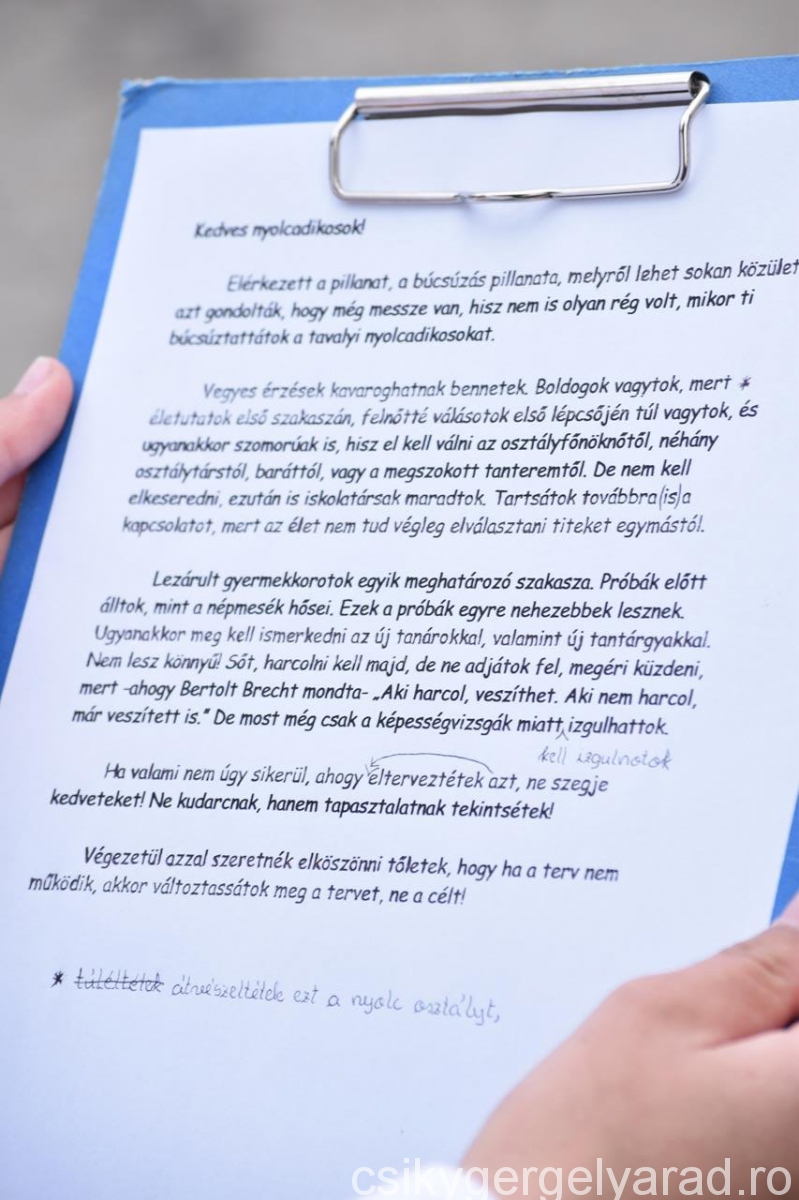 Kedves nyolcadikosok!
Elérkezett a pillanat, a búcsúzás pillanata, melyről lehet sokan közület
azt gondolták, hogy még messze van, hisz nem is olyan rég volt, mikor ti
búcsúztattátok a tavalyi nyolcadikosokat.
Vegyes érzések kavaroghatnak bennetek. Boldogok vagytok, mert *
életutatok első szakaszán, felnőtté válásotok első lépcsőjén túl vagytok, és
ugyanakkor szomorúak is, hisz el kell válni az osztályfőnöknőtől, néhány
osztálytárstól, baráttól, vagy a megszokott tanteremtől. De nem kell
elkeseredni, ezután is iskolatársak maradtok. Tartsátok továbbra(is)a
kapcsolatot, mert az élet nem tud végleg elválasztani titeket egymástól.
Lezárult gyermekkorotok egyik meghatározó szakasza. Próbák előtt
álltok, mint a népmesék hősei. Ezek a próbák egyre nehezebbek lesznek.
Ugyanakkor meg kell ismerkedni az új tanárokkal, valamint új tantárgyakkal.
Nem lesz könnyű! Sőt, harcolni kell majd, de ne adjátok fel, megéri küzdeni,
mert -ahogy Bertolt Brecht mondta- „Aki harcol, veszíthet. Aki nem harcol,
már veszített is.” De most még csak a képességvizsgák miatt izgulhattok.
kell izgulnotok
Ha valami nem úgy sikerül, ahogy elterveztétek azt, ne szegje
kedveteket! Ne kudarcnak, hanem tapasztalatnak tekintsétek!
Végezetül azzal szeretnék elköszönni tőletek, hogy ha a terv nem
működik, akkor változtassátok meg a tervet, ne a célt!
* túléltétek átvészeltétek ezt a nyolc osztályt,
csikygergelyarad.ro